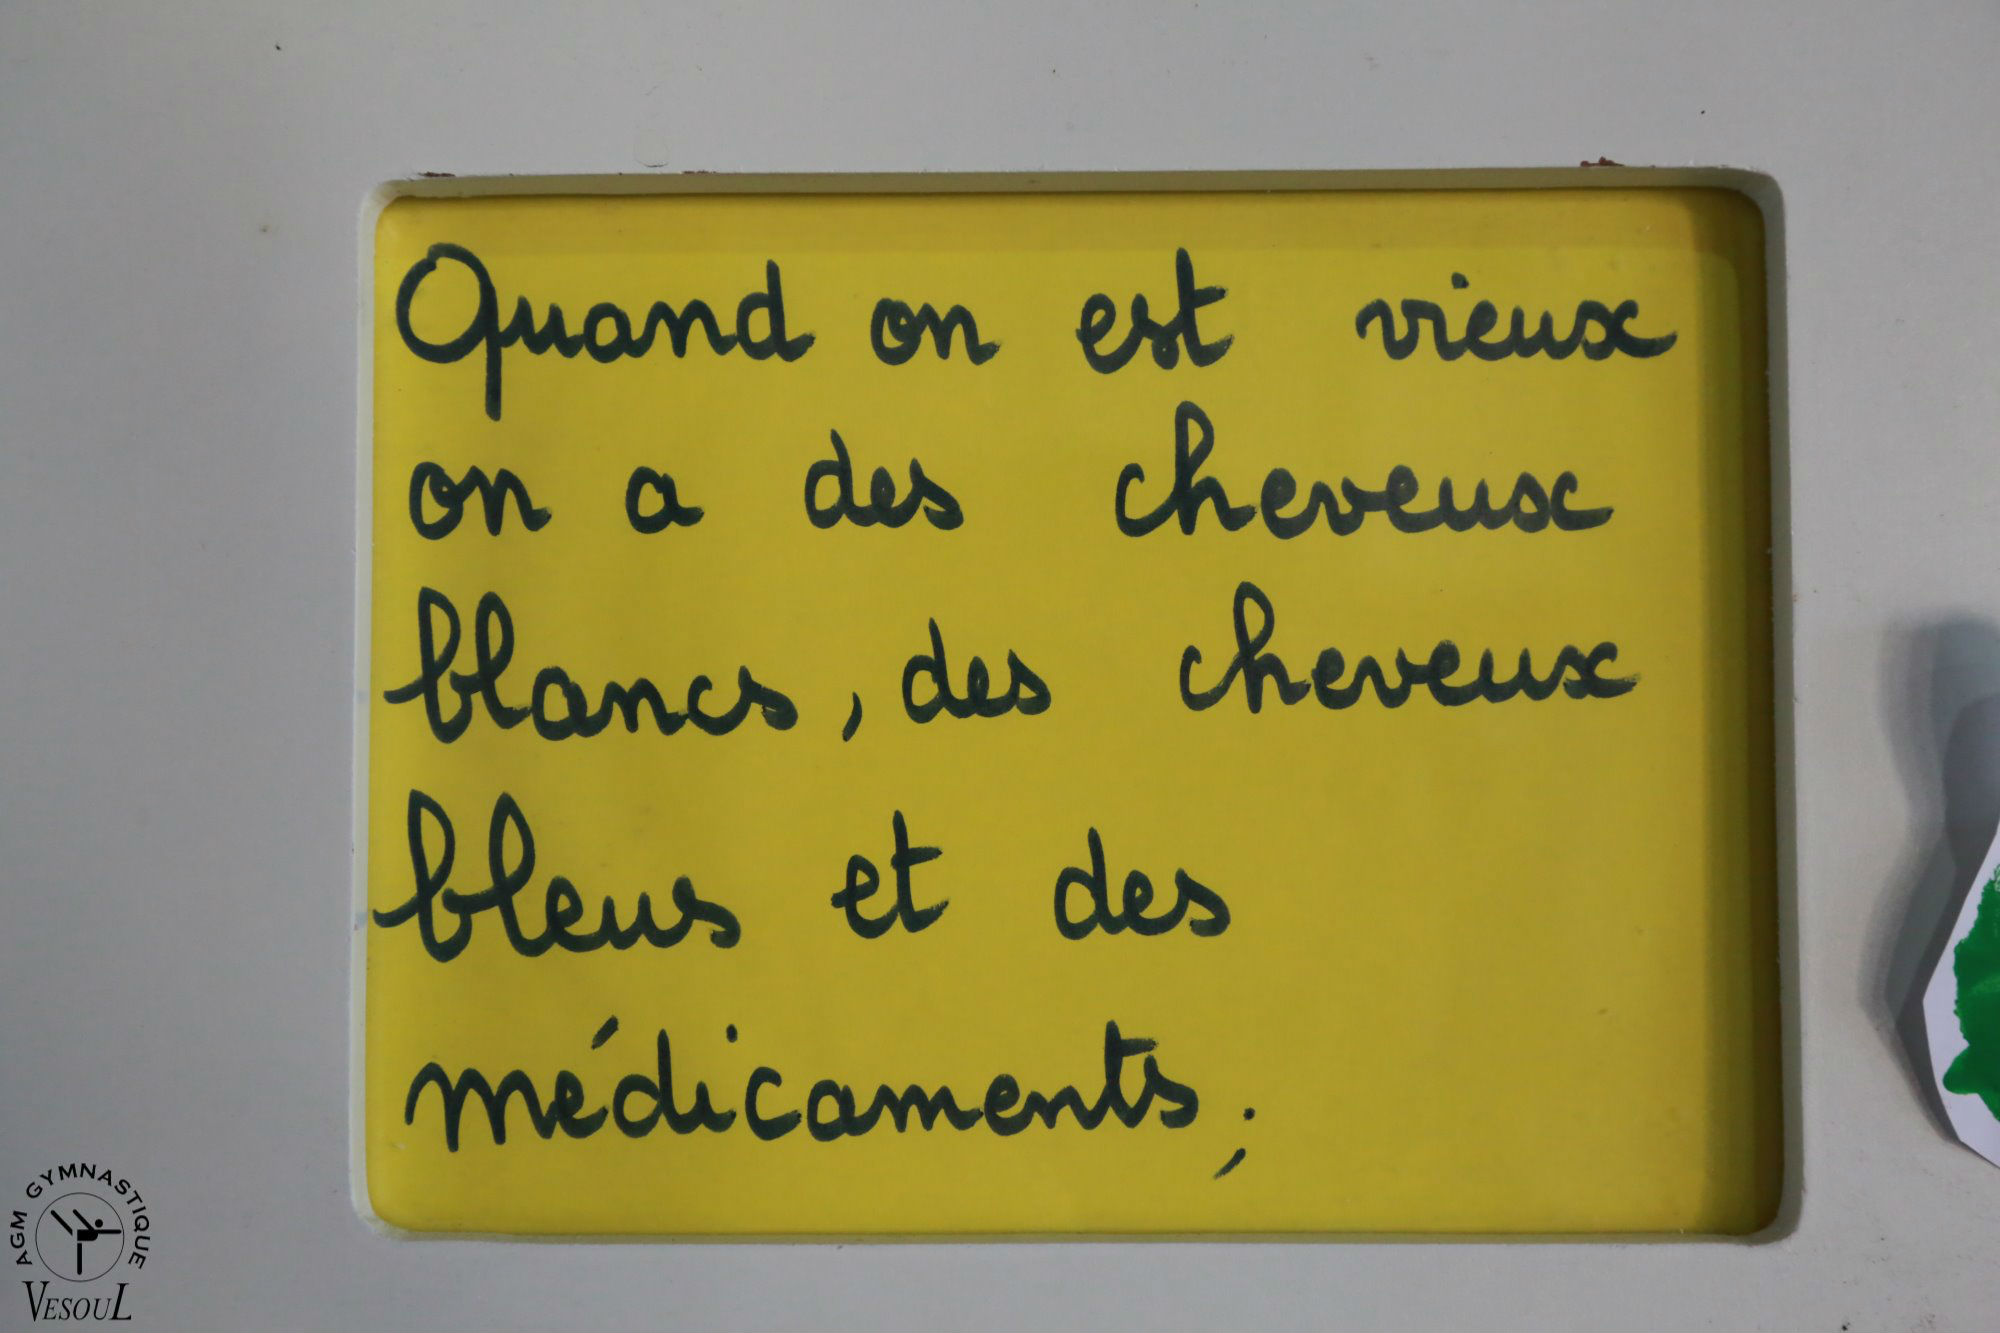 Quand on est vieux
on a des cheveux
blancs, des cheveux
bleus et des
médicaments;
AGM GYMNASTIQUE
VESOUL